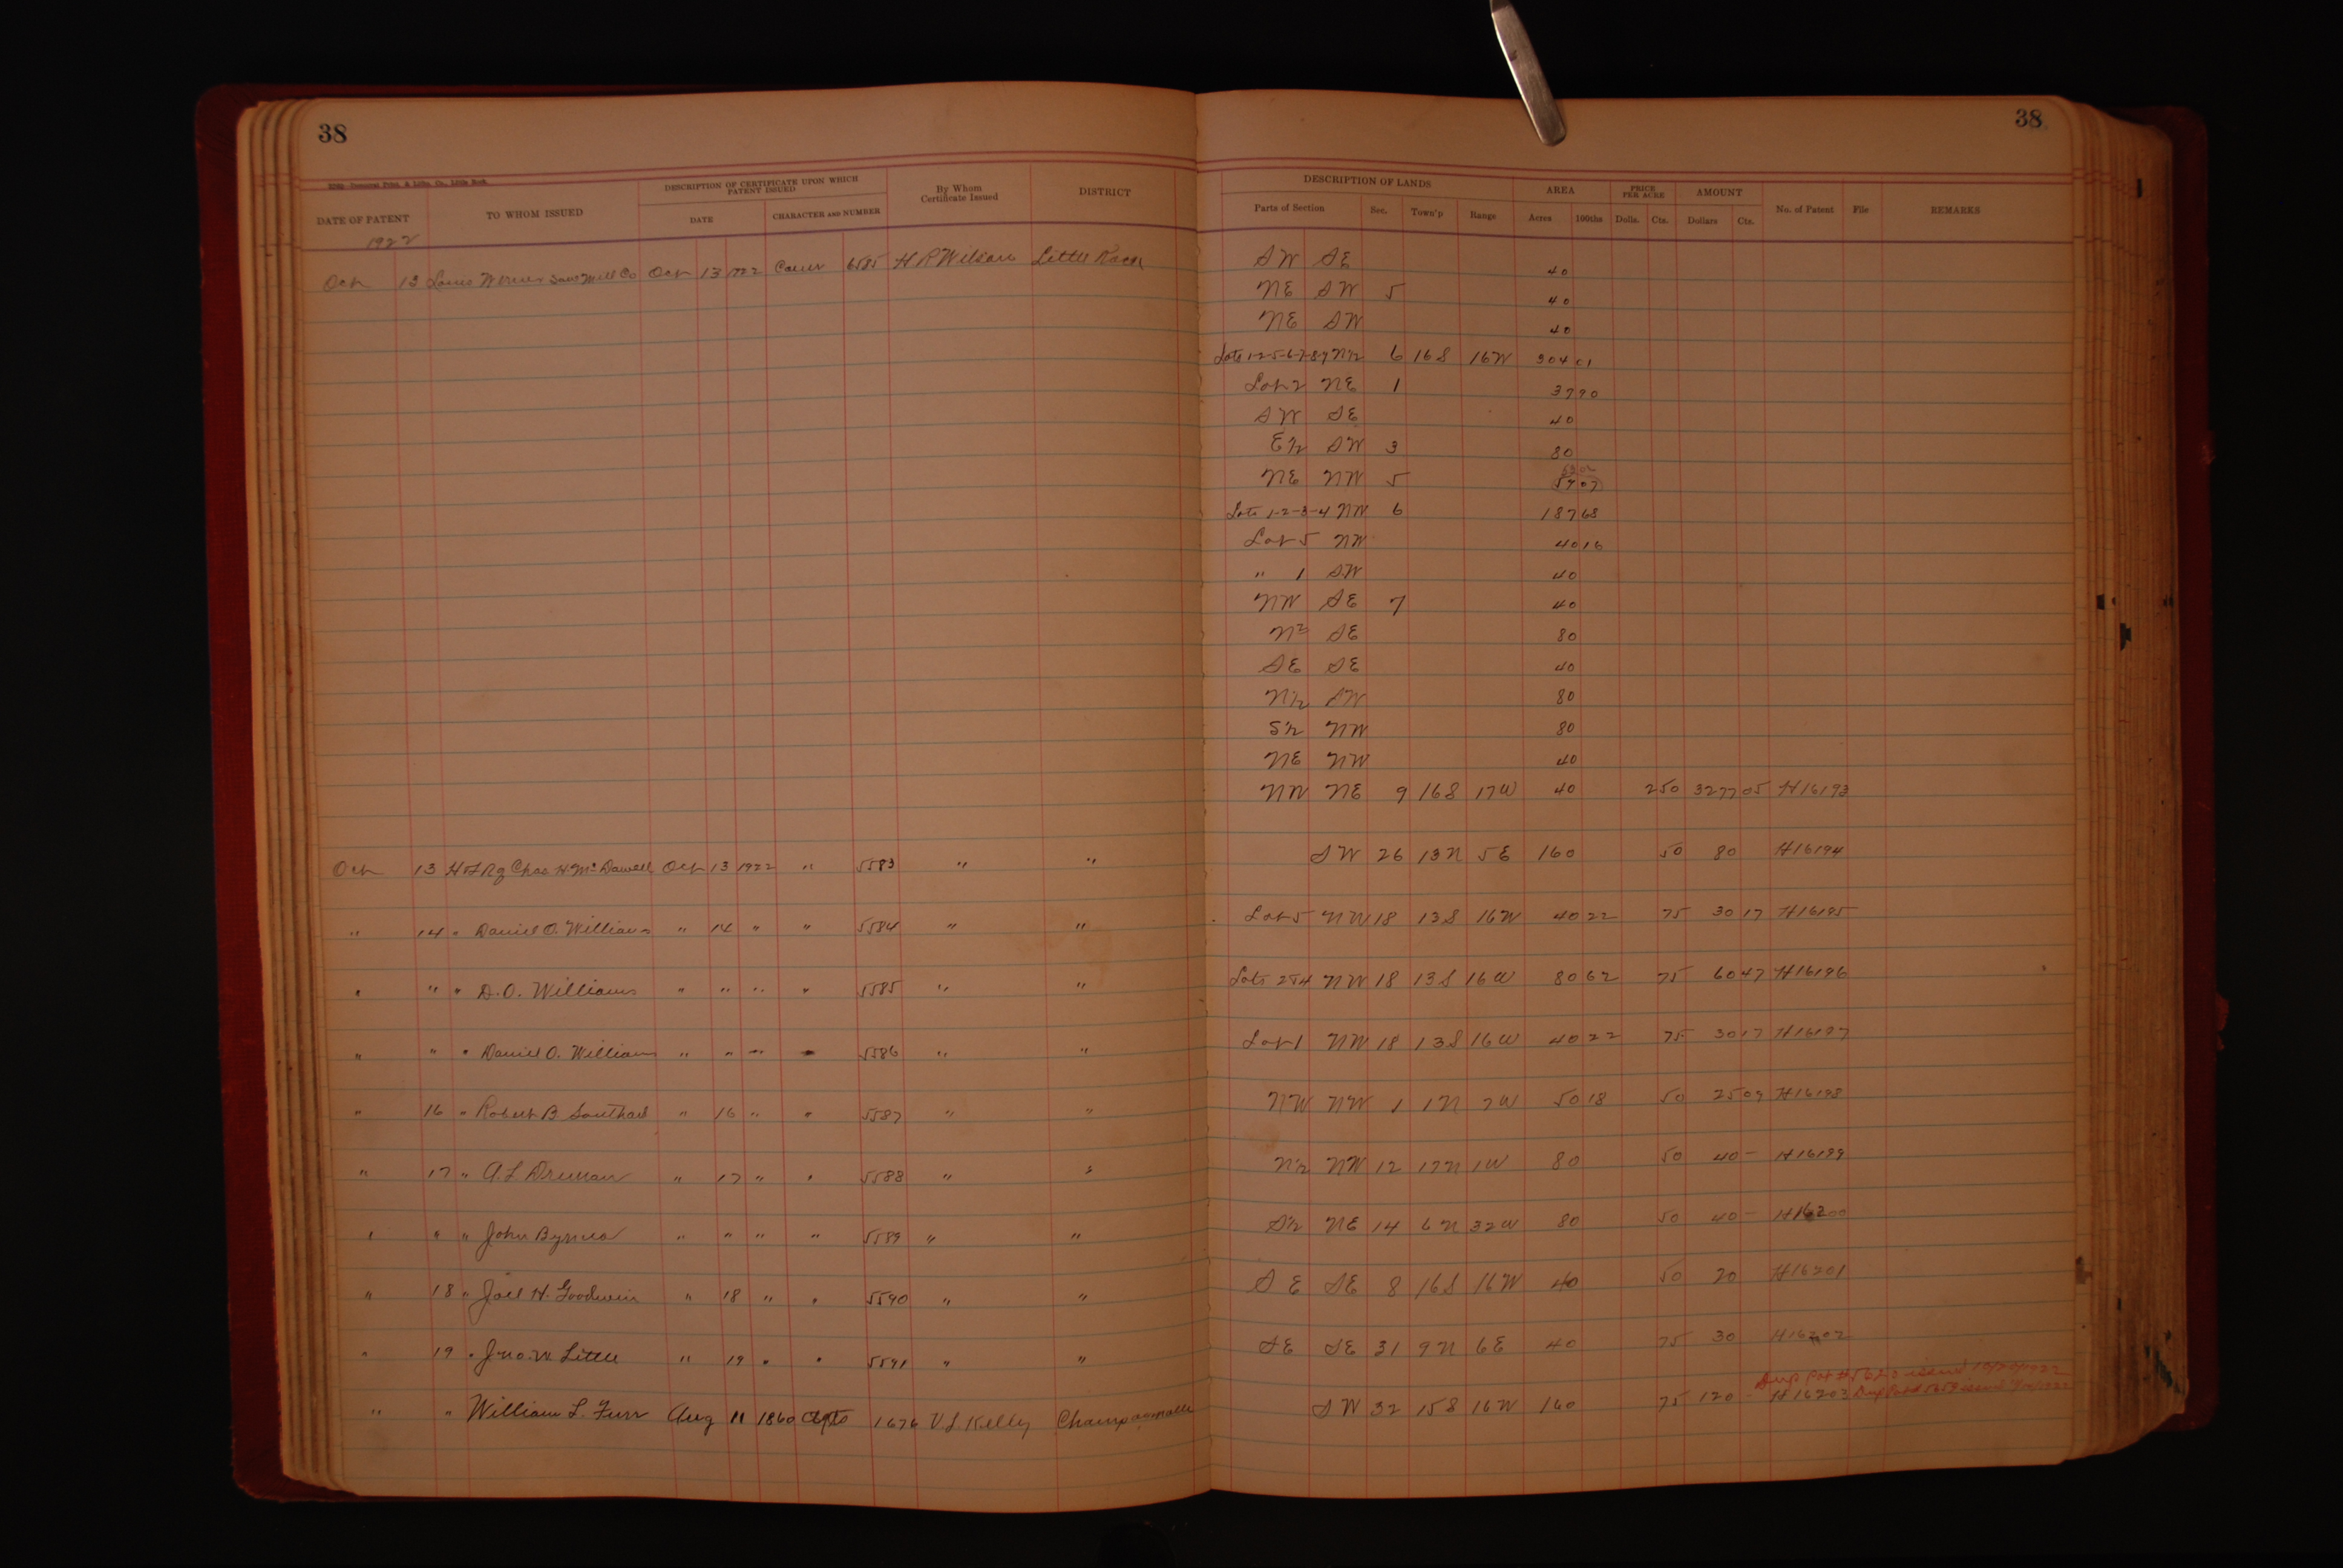 38
38
DATE OF PATENT
TO WHOM ISSUED
DESCRIPTION OF CERTIFICATE UPON WHICH PATENT ISSUED
DATE
CHARACTER AND NUMBER
By Whom Certificate Issued
DISTRICT
DESCRIPTION OF LANDS
Parts of Section
Sec.
Town'p
Range
AREA
Acres
100ths
PRICE PER ACRE
Dolls.
Cts.
AMOUNT
Dollars
Cts.
No. of Patent
File
REMARKS
1922
Oct 13 Louis Werner Saw Mill Co Oct 13 1922 H R Wilson Little Rock SW SE 40
NE SW 5 40
NE SW 40
Lots 1-2-5-6-7-8-9 N½ 6 16S 16W 304 01
Lot 2 NE 1 37 90
SW SE 40
E½ SW 3 80
NE NW 5 59 07
Lots 1-2-3-4 NW 6 187 68
Lot 5 NW 40 16
" 1 SW 40
NW SE 7 40
N² SE 80
SE SE 40
N½ SW 80
S½ NW 80
NE NW 40
NW NE 9 16S 17W 40 2 50 3277 05 H16193
Oct 13 Chas H. McDowell Oct 13 1922 " 5583 " " SW 26 13N 5E 160 50 80 H16194
" 14 " Daniel O. Williams " 14 " " 5584 " " Lot 5 NW 18 13S 16W 40 22 75 30 17 H16195
" " " D. O. Williams " " " " 5585 " " Lots 2&4 NW 18 13S 16W 80 62 75 60 47 H16196
" " " Daniel O. Williams " " " " 5586 " " Lot 1 NW 18 13S 16W 40 22 75 30 17 H16197
" 16 " Robert B Southard " 16 " " 5587 " " NW NW 1 1N 7W 50 18 50 25 09 H16198
" 17 " A. L. " 17 " " 5588 " " N½ NW 12 17N 1W 80 50 40 - H16199
" " " John Byrnes " " " " 5589 " " S½ NE 14 6N 32W 80 50 40 - H16200
" 18 " Joel H. Goodwin " 18 " " 5590 " " SE SE 8 16S 16W 40 50 20 H16201
" 19 " Jno. W. Little " 19 " " 5591 " " SE SE 31 9N 6E 40 75 30 H16202
" " William L. Furr Aug 11 1860 1676 V. S. Kelly Champagnolle SW 32 15S 16W 160 75 120 - H16203